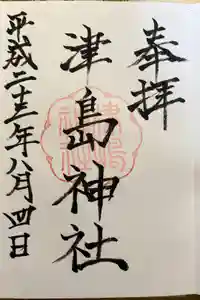 奉拝
津島神社
平成二十三年八月四日